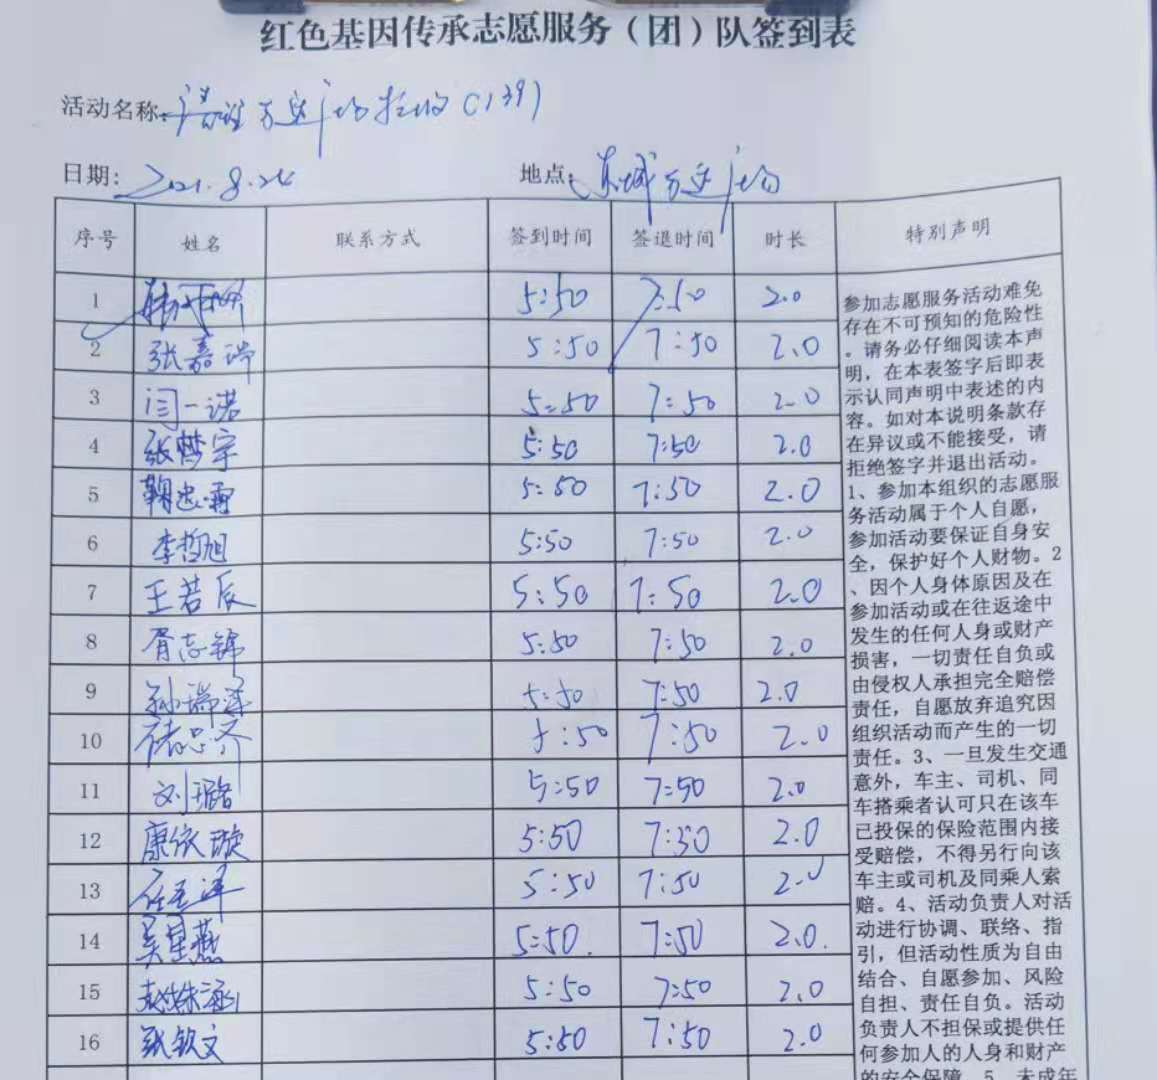 红色基因传承志愿服务（团）队签到表
活动名称：清理万达广场垃圾（139）
日期：2021.8.24 地点：东城万达广场
序号 姓名 联系方式 签到时间 签退时间 时长 特别声明
1 5:50 7:50 2.0
2 张嘉瑞 5:50 7:50 2.0
3 闫一诺 5:50 7:50 2.0
4 张梦宇 5:50 7:50 2.0
5 鞠忠霏 5:50 7:50 2.0
6 李哲旭 5:50 7:50 2.0
7 王若辰 5:50 7:50 2.0
8 胥志锦 5:50 7:50 2.0
9 孙瑞泽 5:50 7:50 2.0
10 5:50 7:50 2.0
11 刘璐 5:50 7:50 2.0
12 康依璇 5:50 7:50 2.0
13 5:50 7:50 2.0
14 吴星燕 5:50. 7:50 2.0.
15 赵姝涵 5:50 7:50 2.0
16 张钦文 5:50 7:50 2.0
参加志愿服务活动难免
存在不可预知的危险性
。请务必仔细阅读本声
明，在本表签字后即表
示认同声明中表述的内
容。如对本说明条款存
在异议或不能接受，请
拒绝签字并退出活动。
1、参加本组织的志愿服
务活动属于个人自愿，
参加活动要保证自身安
全，保护好个人财物。2
、因个人身体原因及在
参加活动或在往返途中
发生的任何人身或财产
损害，一切责任自负或
由侵权人承担完全赔偿
责任，自愿放弃追究因
组织活动而产生的一切
责任。3、一旦发生交通
意外，车主、司机、同
车搭乘者认可只在该车
已投保的保险范围内接
受赔偿，不得另行向该
车主或司机及同乘人索
赔。4、活动负责人对活
动进行协调、联络、指
引，但活动性质为自由
结合、自愿参加、风险
自担、责任自负。活动
负责人不担保或提供任
何参加人的人身和财产
的安全保障。5、未成年